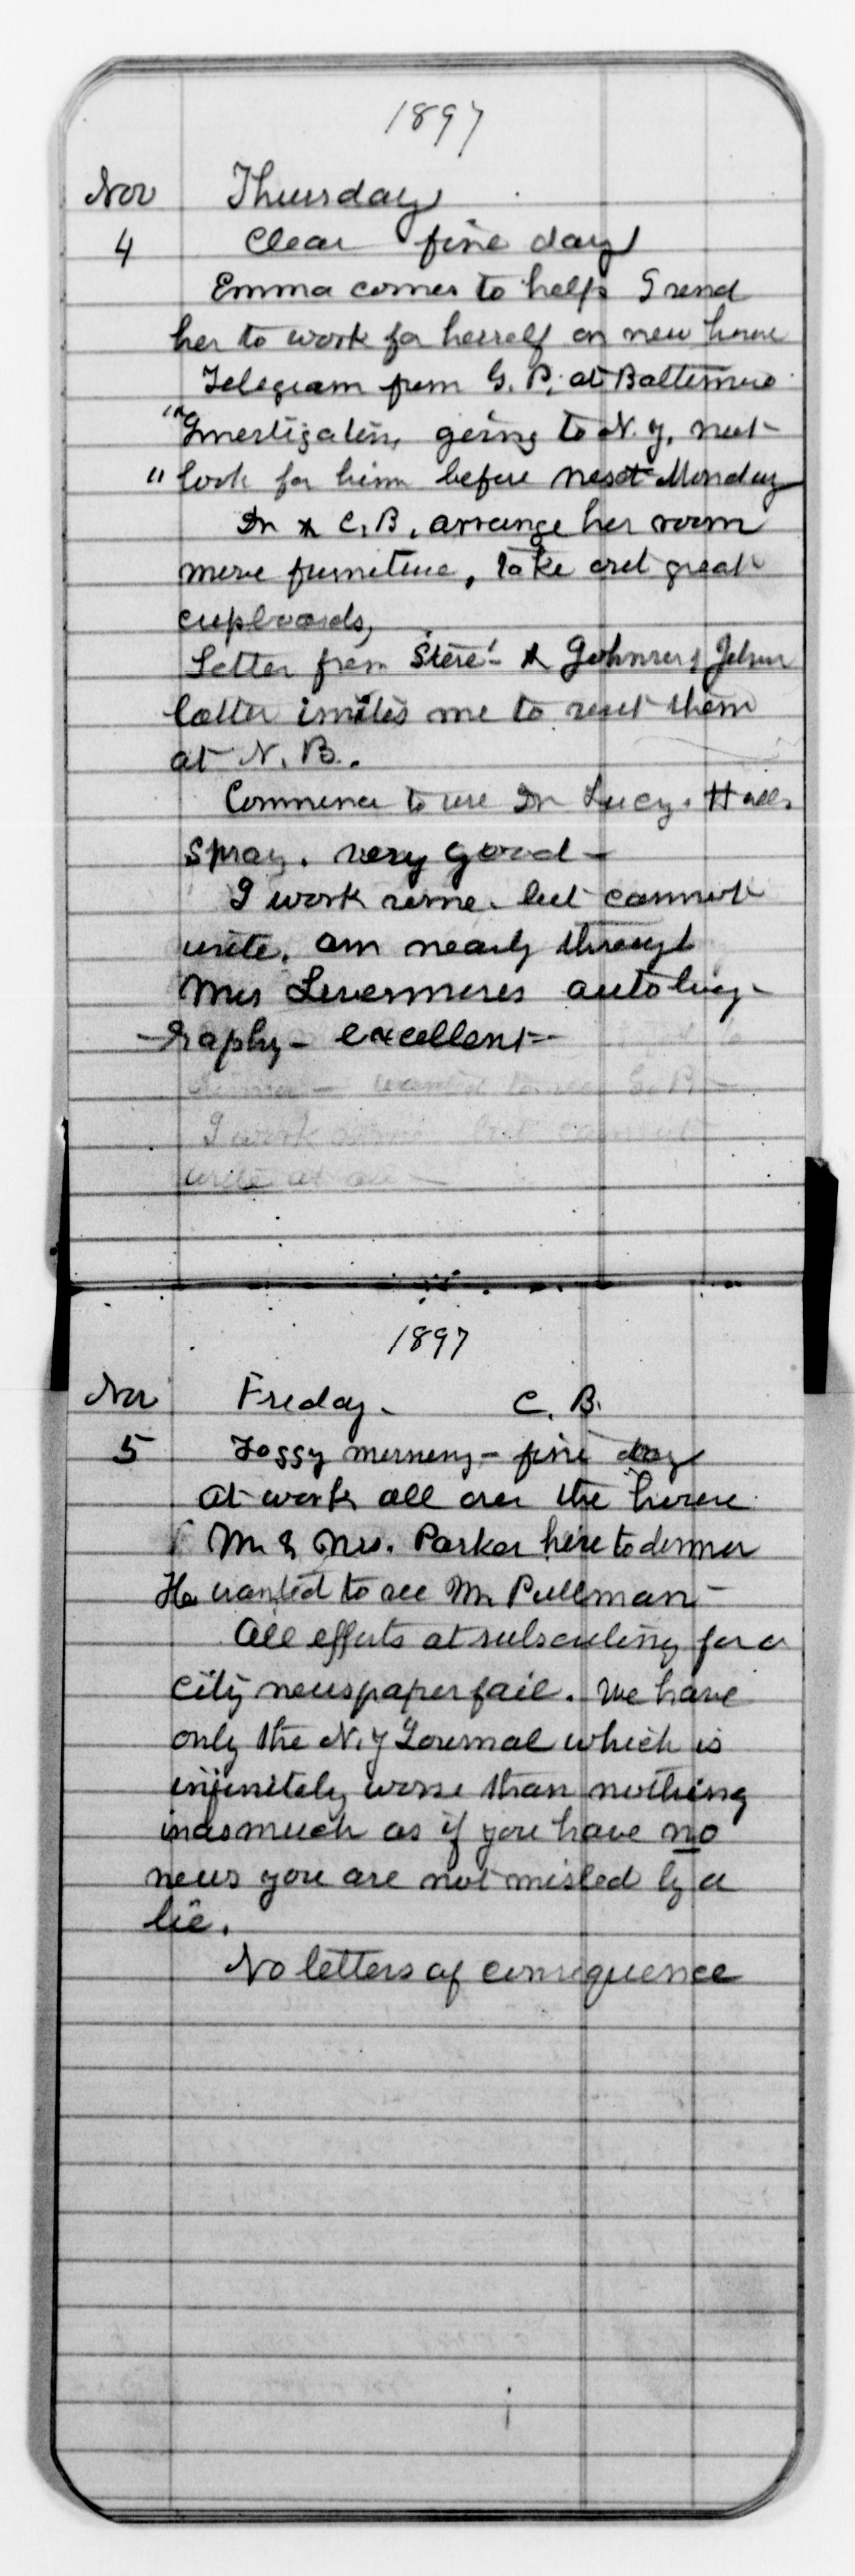 1897
Nov Thursday
4 Clear fine day
Emma comes to help I send
her to work for herself on new house
Telegram from G. P. at Baltimore
"Investigating going to N.Y. not
" look for him before next Monday
Dr & C. B. arrange her room
move furniture, take out great
cupboards,
Letter from Stere' & Johnson
latter invites me to visit them
at N. B.
Commence to use Dr Lucy Halls
spray. very good -
I work some. but cannot
write. am nearly through
Mrs Livermores autobiog-
-raphy - excellent -
wanted to see G. P. -
I work some but cannot
write at all -
1897
Nov Friday - C. B.
5 Foggy morning - fine day
at work all over the house
Mr & Mrs. Parker here to dinner
He wanted to see Mr Pullman -
All efforts at subscribing for a
City newspaper fail. We have
only the N.Y Journal which is
infinitely worse than nothing
inasmuch as if you have no
news you are not misled by a
lie.
No letters of consequence